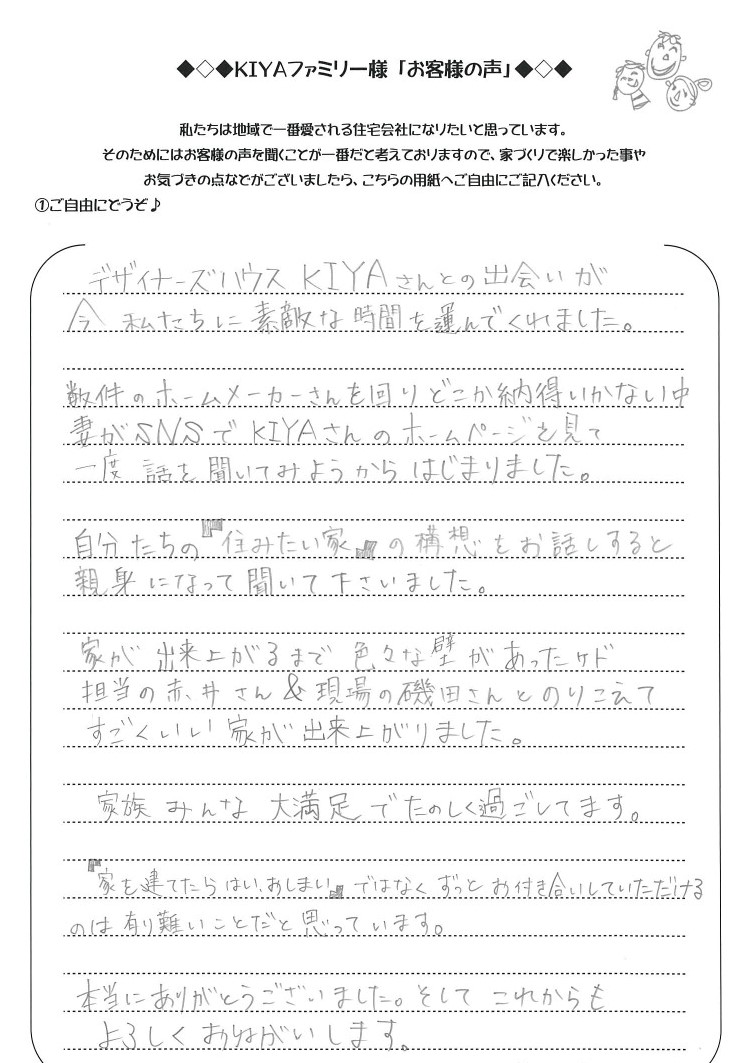 ◆◇◆KIYAファミリー様「お客様の声」◆◇◆
私たちは地域で一番愛される住宅会社になりたいと思っています。
そのためにはお客様の声を聞くことが一番だと考えておりますので、家づくりで楽しかった事や
お気づきの点などがございましたら、こちらの用紙へご自由にご記入ください。
①ご自由にどうぞ♪
デザイナーズハウス KIYAさんとの出会いが
今 私たちに素敵な時間を運んでくれました。
数件のホームメーカーさんを回りどこか納得いかない中
妻がSNSでKIYAさんのホームページを見て
一度 話を聞いてみようからはじまりました。
自分たちの『住みたい家』の構想をお話しすると
親身になって聞いて下さいました。
家が出来上がるまで色々な壁があったケド
担当の赤井さん&現場の磯田さんとのりこえて
すごくいい家が出来上がりました。
家族みんな大満足でたのしく過ごしてます。
『家を建てたらはい、おしまい』ではなくずっとお付き合いしていただける
のは有り難いことだと思っています。
本当にありがとうございました。そして これからも
よろしくおねがいします。